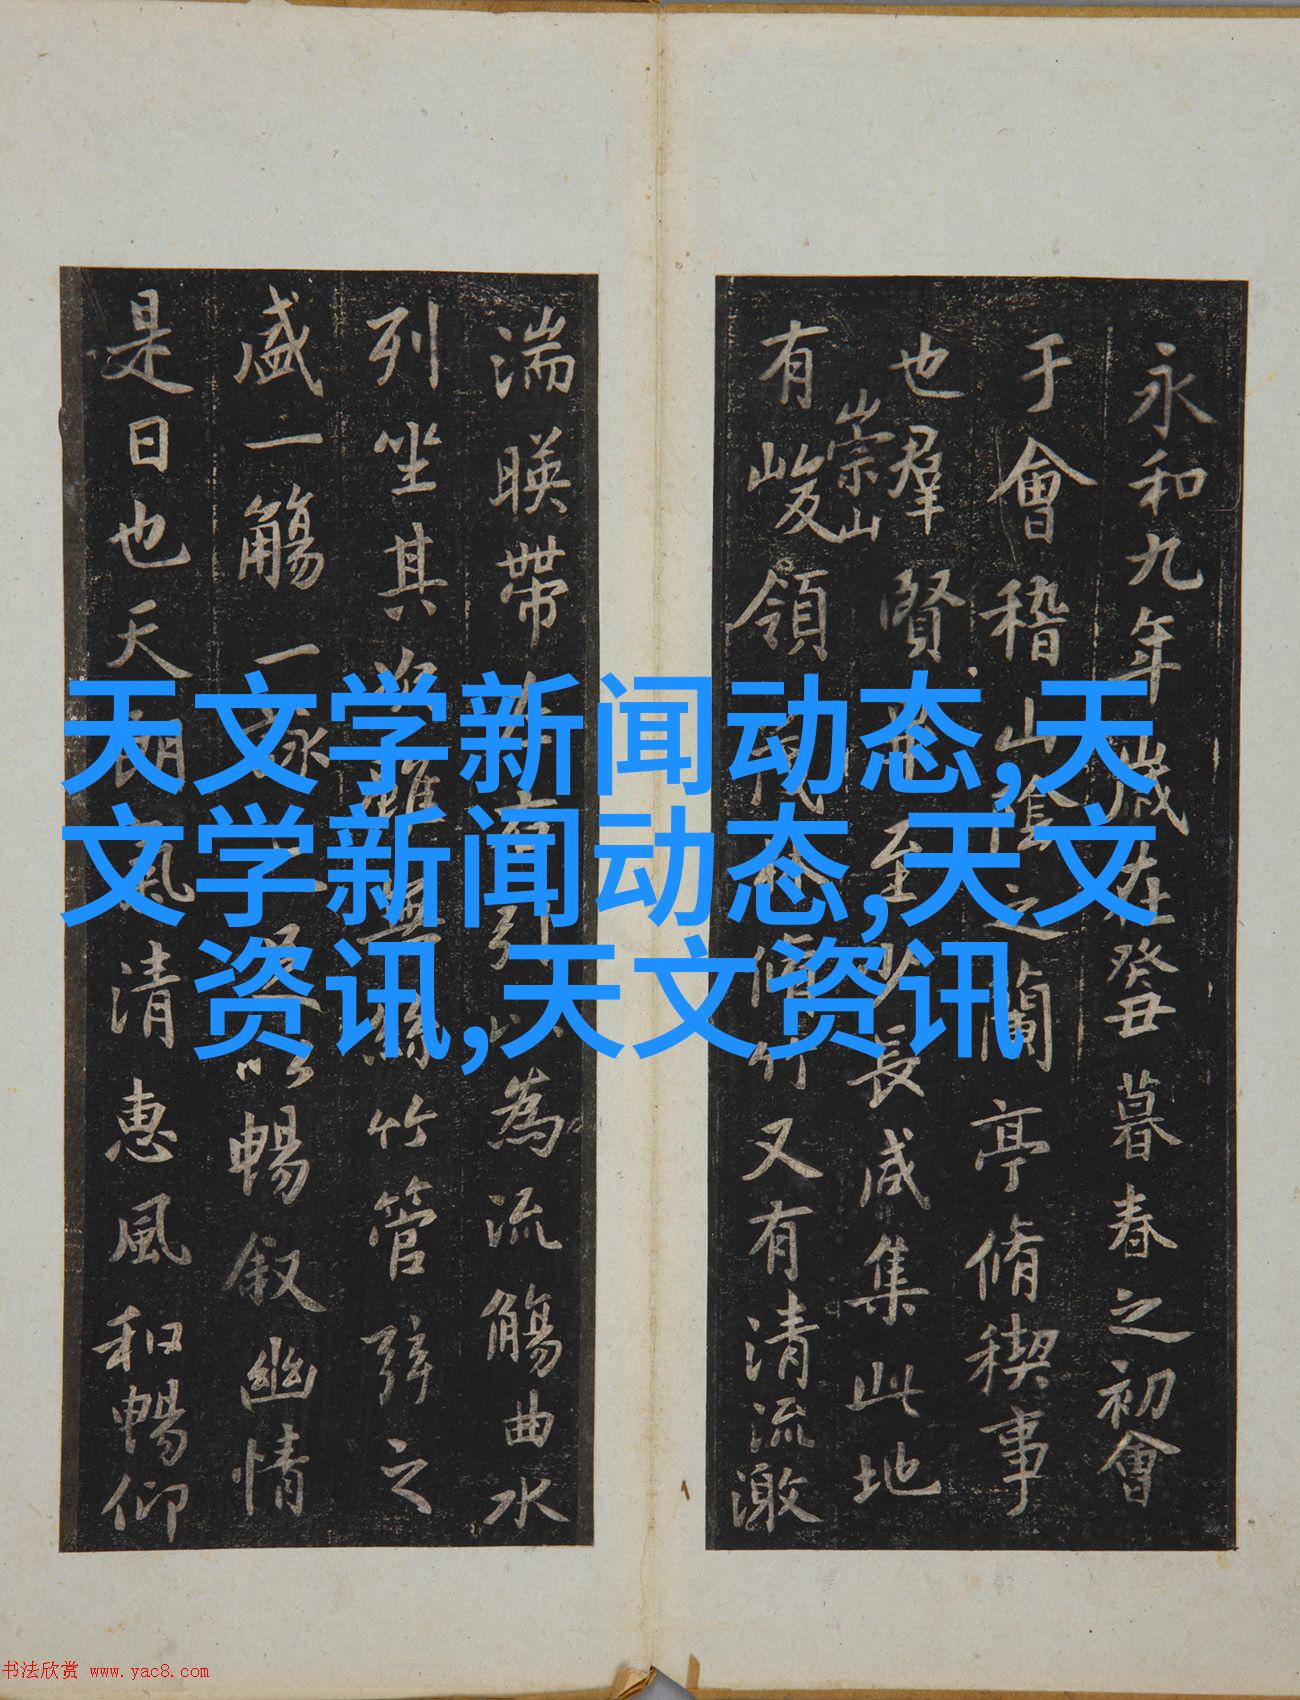 永和九年歲在癸丑暮春之初會
于會稽山陰之蘭亭脩稧事
也羣賢畢至少長咸集此地
崇山
有峻領茂林脩竹又有清流激
湍暎帶左右引以為流觴曲水
列坐其次雖無絲竹管弦之
盛一觴一詠亦足以暢叙幽情
是日也天朗氣清惠風和暢仰
天文学新闻动态,天
文学新闻动态,天文
资讯,天文资讯
书法欣赏 www.yac8.com